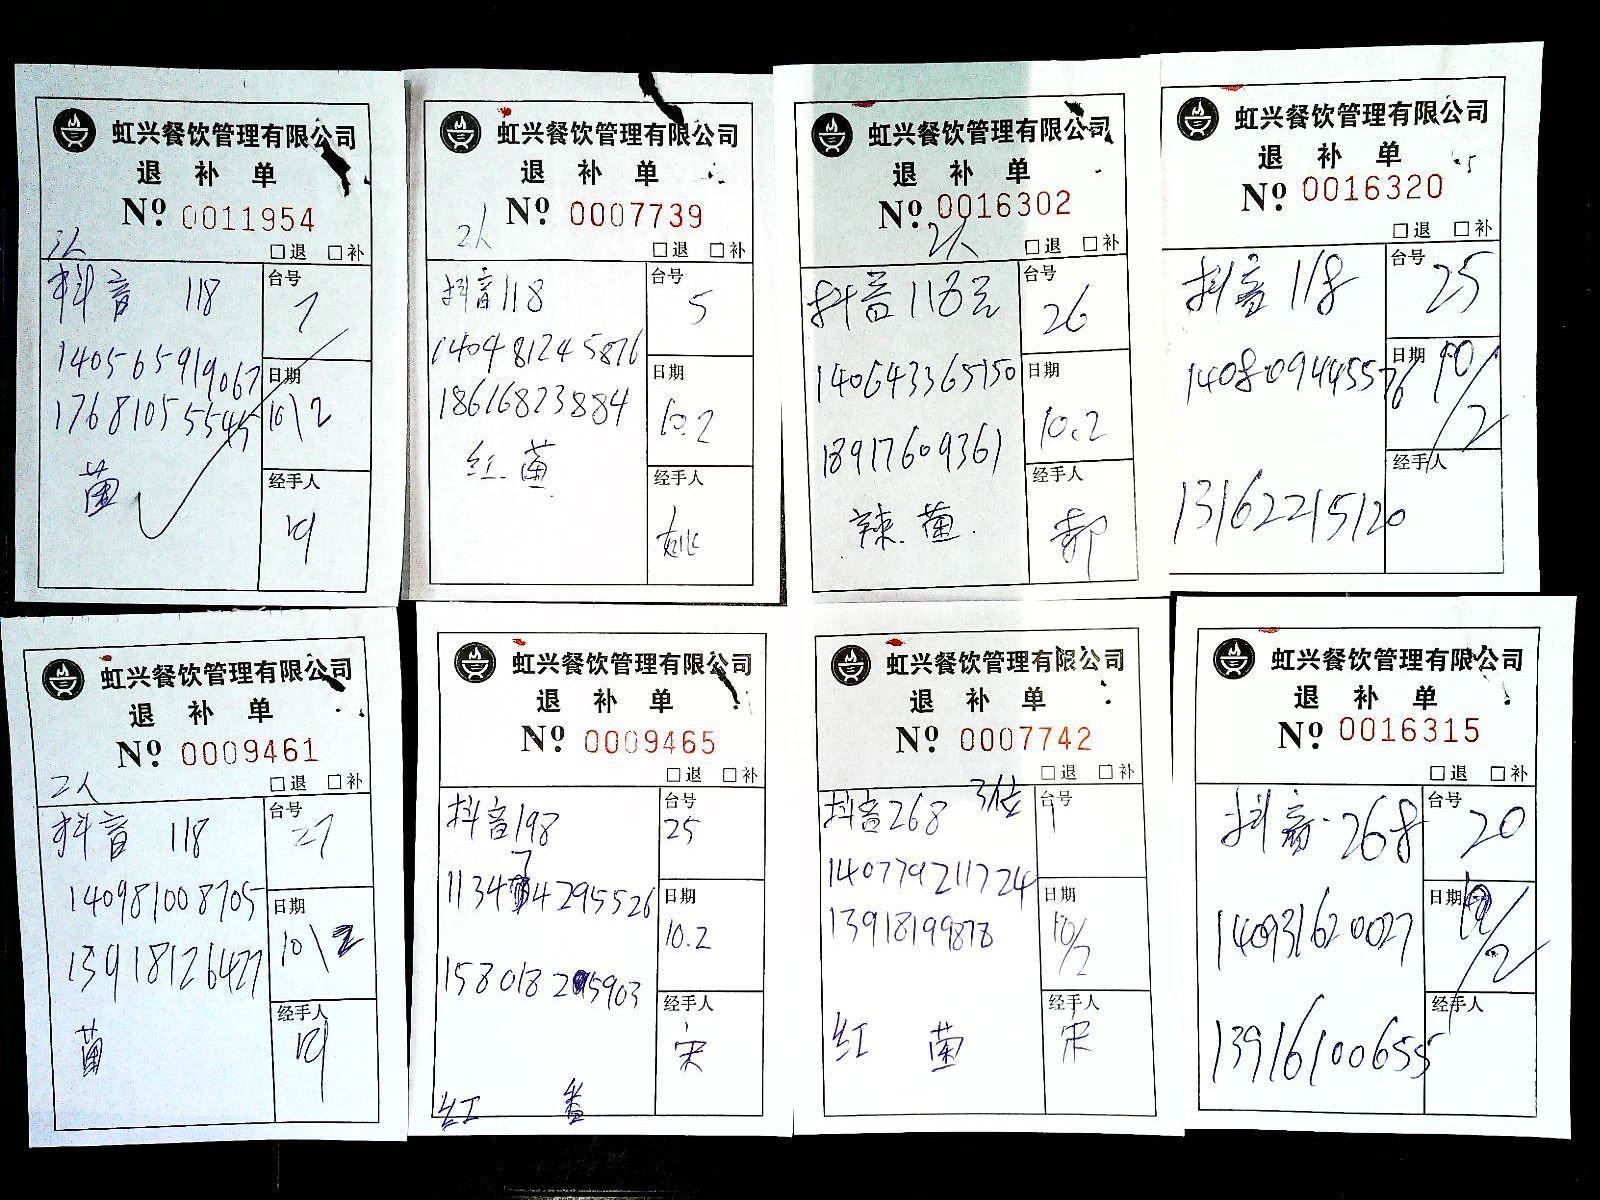 虹兴餐饮管理有限公司
退 补 单
Nº 0011954
□退 □补
抖音 118
台号
7
140565919067
日期
10\2
17681055545
菌
经手人
虹兴餐饮管理有限公司
退 补 单
Nº 0007739
2人
□退 □补
抖音118
台号
5
140481245876
日期
10.2
18616823884
红.菌
经手人
姚
虹兴餐饮管理有限公司
退 补 单
Nº 0016302
2人
□退 □补
抖音118元
台号
26
140643365150
日期
10.2
18917609361
辣.菌.
经手人
郝
虹兴餐饮管理有限公司
退 补 单
Nº 0016320
□退 □补
抖音118
台号
25
日期
10/2
经手人
13162215120
虹兴餐饮管理有限公司
退 补 单
Nº 0009461
2人
□退 □补
抖音 118
台号
27
140981008705
日期
10\2
13918126427
菌
经手人
虹兴餐饮管理有限公司
退 补 单
Nº 0009465
□退 □补
抖音198
台号
25
日期
10.2
经手人
宋
红 番
虹兴餐饮管理有限公司
退 补 单
Nº 0007742
□退 □补
抖音268 3位
台号
1
140779211724
日期
10/2
13918199878
红 菌
经手人
宋
虹兴餐饮管理有限公司
退 补 单
Nº 0016315
□退 □补
抖音·268
台号
20
140931620027
日期
10/2
经手人
13916100655